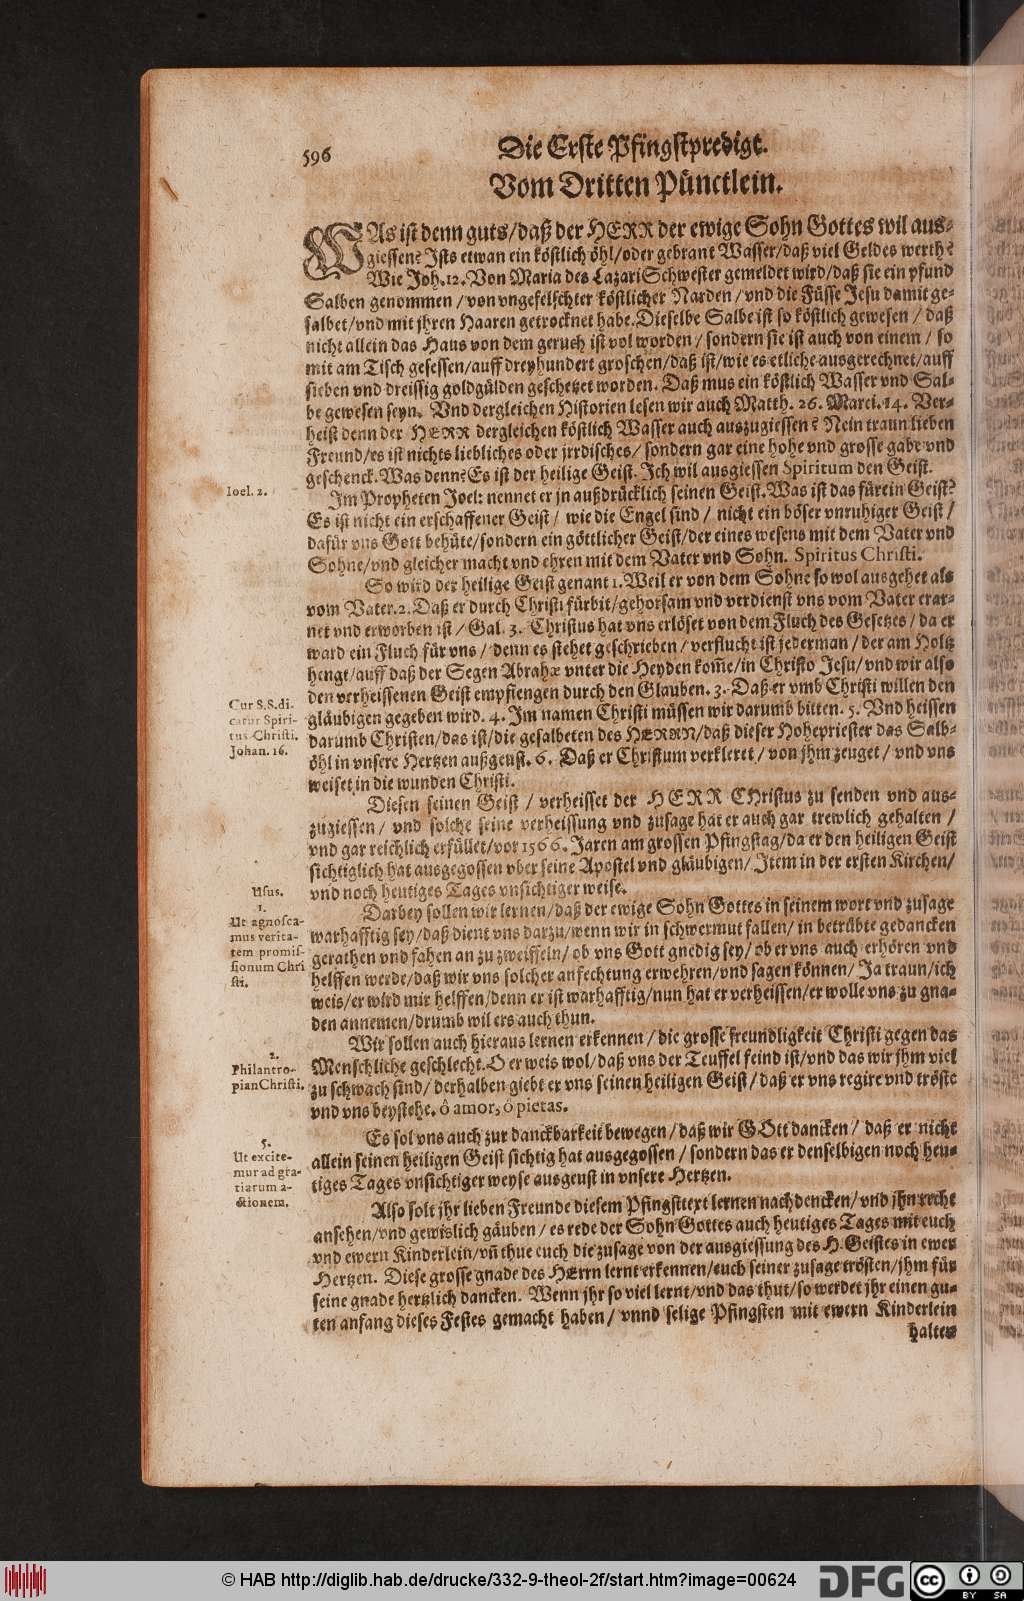 596
Die Erste Pfingstpredigt.
Vom Dritten Pünctlein.
WAs ist denn guts/daß der HERR der ewige Sohn Gottes wil aus-
giessen? Ists etwan ein köstlich öhl/oder gebrant Wasser/daß viel Geldes werth?
Wie Joh.12. Von Maria des Lazari Schwester gemeldet wird/daß sie ein pfund
Salben genommen/von vngefelschter köstlicher Narden/vnd die Füsse Jesu damit ge-
salbet/vnd mit jhren Haaren getrocknet habe. Dieselbe Salbe ist so köstlich gewesen/ daß
nicht allein das Haus von dem geruch ist vol worden/ sondern sie ist auch von einem/ so
mit am Tisch gesessen/auff dreyhundert groschen/daß ist/wie es etliche ausgerechnet/auff
sieben vnd dreissig goldgülden geschetzet worden. Daß mus ein köstlich Wasser vnd Sal-
be gewesen seyn. Vnd dergleichen Historien lesen wir auch Matth. 26. Marci. 14. Ver-
heist denn der HERR dergleichen köstlich Wasser auch auszugiessen? Nein traun lieben
Freund/es ist nichts liebliches oder jrrdisches/ sondern gar eine hohe vnd grosse gabe vnd
geschenck. Was denn? Es ist der heilige Geist. Ich wil ausgiessen Spiritum den Geist.
Ioel. 2.
Im Propheten Joel: nennet er jn außdrücklich seinen Geist. Was ist das für ein Geist?
Es ist nicht ein erschaffener Geist/ wie die Engel sind/ nicht ein böser vnruhiger Geist/
dafür vns Gott behüte/sondern ein göttlicher Geist/der eines wesens mit dem Vater vnd
Sohne/vnd gleicher macht vnd ehren mit dem Vater vnd Sohn. Spiritus Christi.
So wird der heilige Geist genant 1. Weil er von dem Sohne so wol ausgehet als
vom Vater. 2. Daß er durch Christi fürbit/gehorsam vnd verdienst vns vom Vater erar-
net vnd erworben ist/ Gal. 3. Christus hat vns erlöset von dem Fluch des Gesetzes/ da er
ward ein Fluch für vns/ denn es stehet geschrieben/ verflucht ist jederman/ der am Holtz
hengt/auff daß der Segen Abrahæ vnter die Heyden kom̃e/in Christo Jesu/vnd wir also
den verheissenen Geist empfiengen durch den Glauben. 3. Daß er vmb Christi willen den
gläubigen gegeben wird. 4. Im namen Christi müssen wir darumb bitten. 5. Vnd heissen
darumb Christen/das ist/die gesalbeten des HERRN/daß dieser Hohepriester das Salb-
öhl in vnsere Hertzen außgeust. 6. Daß er Christum verkleret/ von jhm zeuget/ vnd vns
weiset in die wunden Christi.
Cur S.S. di-
catur Spiri-
tus Christi.
Johan. 16.
Diesen seinen Geist/ verheisset der HERR CHristus zu senden vnd aus-
zugiessen/ vnd solche seine verheissung vnd zusage hat er auch gar trewlich gehalten/
vnd gar reichlich erfüllet/vor 1566. Jaren am grossen Pfingstag/da er den heiligen Geist
sichtiglich hat ausgegossen vber seine Apostel vnd gläubigen/ Item in der ersten Kirchen/
vnd noch heutiges Tages vnsichtiger weise.
Usus.
1.
Ut agnosca-
mus verita-
tem promis-
sionum Chri
sti.
Darbey sollen wir lernen/daß der ewige Sohn Gottes in seinem wort vnd zusage
warhafftig sey/daß dient vns darzu/wenn wir in schwermut fallen/ in betrübte gedancken
gerathen vnd fahen an zu zweiffeln/ ob vns Gott gnedig sey/ ob er vns auch erhören vnd
helffen werde/daß wir vns solcher anfechtung erwehren/vnd sagen können/ Ja traun/ich
weis/er wird mir helffen/denn er ist warhafftig/nun hat er verheissen/er wolle vns zu gna-
den annemen/drumb wil ers auch thun.
2.
Philantro-
pian Christi.
Wir sollen auch hieraus lernen erkennen/die grosse freundligkeit Christi gegen das
Menschliche geschlecht. O er weis wol/daß vns der Teuffel feind ist/vnd das wir jhm viel
zu schwach sind/ derhalben giebt er vns seinen heiligen Geist/ daß er vns regire vnd tröste
vnd vns beystehe. ô amor, ô pietas.
3.
Ut excite-
mur ad gra-
tiarum a-
ctionem.
Es sol vns auch zur danckbarkeit bewegen/daß wir GOtt dancken/ daß er nicht
allein seinen heiligen Geist sichtig hat ausgegossen/ sondern das er denselbigen noch heu-
tiges Tages vnsichtiger weyse ausgeust in vnsere Hertzen.
Also solt jhr lieben Freunde diesem Pfingsttext lernen nachdencken/vnd jhn recht
ansehen/vnd gewislich gäuben/ es rede der Sohn Gottes auch heutiges Tages mit euch
vnd ewern Kinderlein/vñ thue euch die zusage von der ausgiessung des H. Geistes in ewer
Hertzen. Diese grosse gnade des HErrn lernt erkennen/euch seiner zusage trösten/jhm für
seine gnade hertzlich dancken. Wenn jhr so viel lernt/vnd das thut/so werdet jhr einen gu-
ten anfang dieses Festes gemacht haben/ vnnd selige Pfingsten mit ewern Kinderlein
halten
© HAB http://diglib.hab.de/drucke/332-9-theol-2f/start.htm?image=00624
DFG
cc
BY SA